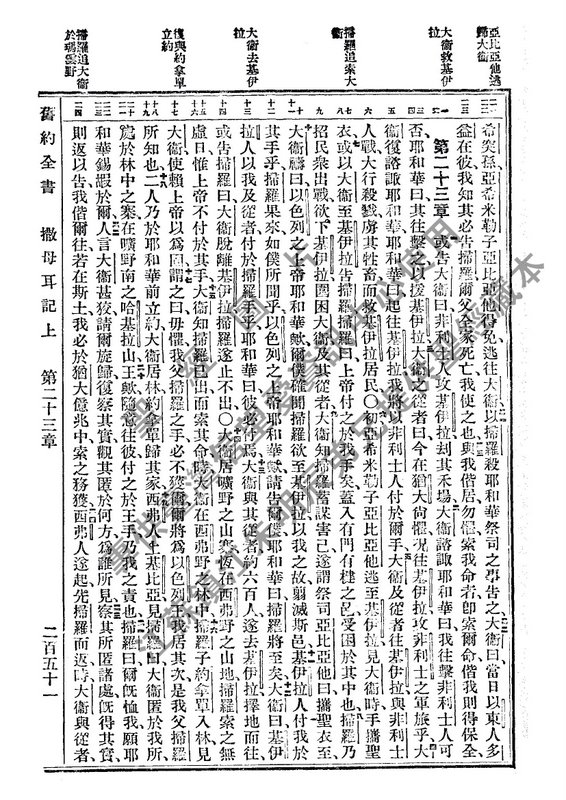 亞比亞他逃歸大衛
大衛救基伊拉
掃羅追索大衛
大衛去基伊拉
復與約拿單立約
掃羅追大衛於瑪雲野
希突孫亞希米勒子亞比亞他得免逃往大衛以掃羅殺耶和華祭司之事告之大衛曰當日以東人多
益在彼我知其必告掃羅爾父全家死亡我使之也與我偕居勿懼索我命者卽索爾命偕我則得保全
第二十三章 或告大衛曰非利士人攻基伊拉刦其禾場大衛諮諏耶和華曰我往擊非利士人可
否耶和華曰其往擊之以援基伊拉大衛從者曰今在猶大尚懼況往基伊拉攻非利士之軍旅乎大
衛復諮諏耶和華耶和華曰起往基伊拉我將以非利士人付於爾手大衛及從者往基伊拉與非利士
人戰大行殺戮虜其牲畜而救基伊拉居民○初亞希米勒子亞比亞他逃至基伊拉見大衛時手攜聖
衣或以大衛至基伊拉告掃羅掃羅曰上帝付之於我手矣蓋入有門有楗之邑受困於其中也掃羅乃
招民衆出戰欲下基伊拉圍困大衛及其從者大衛知掃羅蓄謀害己遂謂祭司亞比亞他曰攜聖衣至
大衛禱曰以色列之上帝耶和華歟僕確聞掃羅欲至基伊拉以我之故翦滅斯邑基伊拉人付我於
其手乎掃羅果來如僕所聞乎以色列之上帝耶和華歟請告爾僕耶和華曰掃羅將至矣大衛曰基伊
拉人以我及從者付於掃羅手乎耶和華曰彼必付焉大衛與其從者約六百人遂去基伊拉擇地而往
或告掃羅曰大衛脫離基伊拉掃羅遂止不出○大衛居曠野之山寨恆在西弗野之山地掃羅索之無
虛日惟上帝不付於其手大衛知掃羅已出而索其命時大衛在西弗野之林中掃羅子約拿單入林見
大衛使賴上帝以爲固謂之曰毋懼我父掃羅之手必不獲爾爾將爲以色列王我居其次是我父掃羅
所知也二人乃於耶和華前立約大衛居林約拿單歸其家西弗人上基比亞見掃羅曰大衛匿於我所
處於林中之寨在曠野南之哈基拉山王歟隨意往彼付之於王手乃我之責也掃羅曰爾旣恤我願耶
和華錫嘏於爾人言大衛甚狡請爾旋歸復察其實觀其匿於何方爲誰所見察其所匿諸處旣得其實
則返以告我偕爾往若在斯土我必於猶大億兆中索之務獲西弗人遂起先掃羅而返時大衛與從者
舊約全書 撒母耳記上 第二十三章 二百五十一